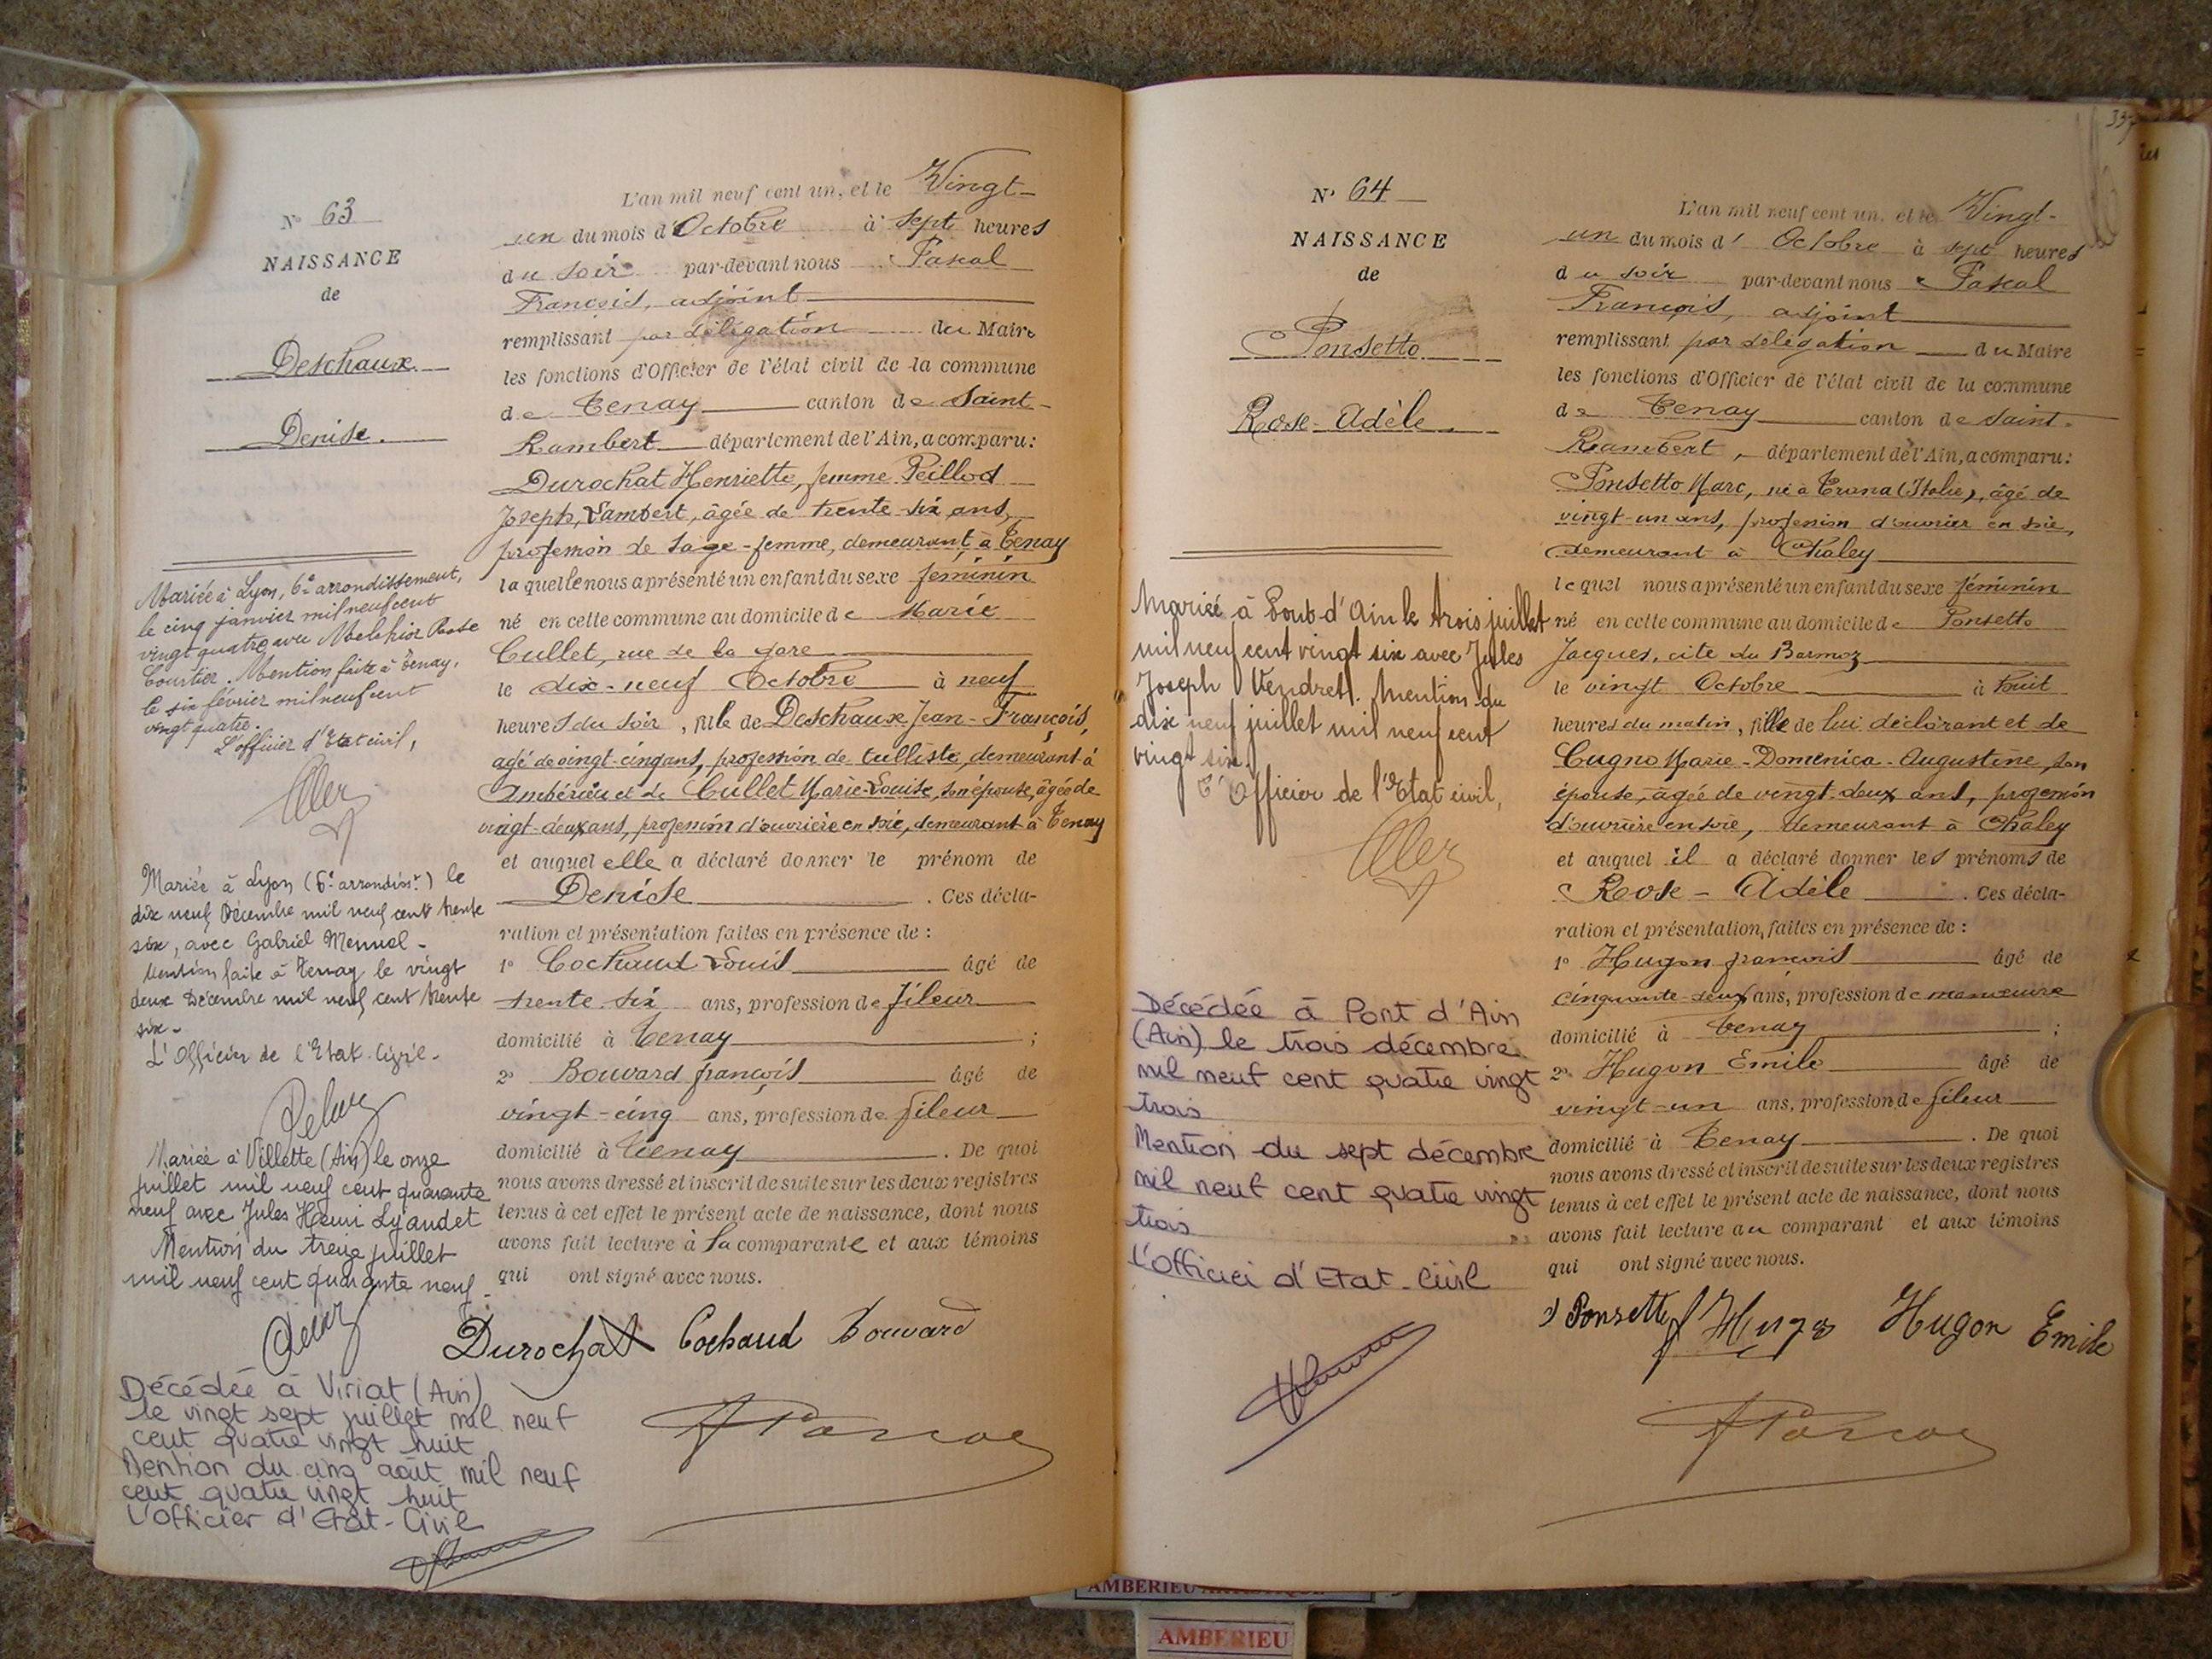 N° 63
NAISSANCE
de
Deschaux
Denise.
Mariée à Lyon, 6e arrondissement,
le cinq janvier mil neuf cent
vingt quatre avec Melchior
Courtier. Mention faite à Tenay,
le six février mil neuf cent
vingt quatre.
L'officier d'Etat civil,
Mariée à Lyon (6e arrondist) le
dix neuf Décembre mil neuf cent trente
six, avec Gabriel Mennel -
Mention faite à Tenay le vingt
deux Décembre mil neuf cent trente
six -
L'Officier de l'Etat-Civil -
Mariée à Villette (Ain) le onze
juillet mil neuf cent quarante
neuf avec Jules Henri Lyaudet
Mention du treize juillet
mil neuf cent quarante neuf -
Décédée à Viriat (Ain)
le vingt sept juillet mil neuf
cent quatre vingt huit
Mention du cinq août mil neuf
cent quatre vingt huit
L'officier d'Etat-Civil
L'an mil neuf cent un, et le Vingt-
un du mois d'Octobre à sept heures
du soir par-devant nous Pascal
François, adjoint
remplissant par délégation du Maire
les fonctions d'Officier de l'état civil de la commune
de Tenay canton de Saint-
Rambert département de l'Ain, a comparu:
Durochat Henriette, femme Peillod
Joseph, Lambert, âgée de trente-six ans,
profession de sage-femme, demeurant à Tenay
la quelle nous a présenté un enfant du sexe féminin
né en cette commune au domicile de Marie
Cullet, rue de la gare
le dix-neuf Octobre à neuf
heures du soir, fille de Deschaux Jean-François,
âgé de vingt-cinq ans, profession de tulliste, demeurant à
Ambérieu et de Cullet Marie-Louise, son épouse, âgée de
vingt-deux ans, profession d'ouvrière en soie, demeurant à Tenay
et auquel elle a déclaré donner le prénom de
Denise . Ces décla-
ration et présentation faites en présence de :
1° Cochaud Louis âgé de
trente-six ans, profession de fileur
domicilié à Tenay ;
2° Bouvard françois âgé de
vingt-cinq ans, profession de fileur
domicilié à Tenay . De quoi
nous avons dressé et inscrit de suite sur les deux registres
tenus à cet effet le présent acte de naissance, dont nous
avons fait lecture à la comparante et aux témoins
qui ont signé avec nous.
Durochat Cochaud Bouvard
FPascal
N° 64
NAISSANCE
de
Ponsetto
Rose-Adèle.
Mariée à Pont-d'Ain le trois juillet
mil neuf cent vingt six avec Jules
Joseph Vendrell. Mention du
dix neuf juillet mil neuf cent
vingt six.
L'Officier de l'Etat civil,
Décédée à Pont d'Ain
(Ain) le trois décembre
mil neuf cent quatre vingt
trois
Mention du sept décembre
mil neuf cent quatre vingt
trois
L'officier d'Etat-Civil
L'an mil neuf cent un, et le Vingt-
un du mois d' Octobre à sept heures
du soir par-devant nous Pascal
François, adjoint
remplissant par délégation du Maire
les fonctions d'Officier de l'état civil de la commune
de Tenay canton de Saint-
Rambert, département de l'Ain, a comparu:
Ponsetto Marc, né à Trana (Italie), âgé de
vingt-un ans, profession d'ouvrier en soie,
demeurant à Chaley
le quel nous a présenté un enfant du sexe féminin
né en cette commune au domicile de Ponsetto
Jacques, cité du Barmoz
le vingt Octobre à huit
heures du matin, fille de lui déclarant et de
Cugno Marie-Domenica-Augustine, son
épouse, âgée de vingt-deux ans, profession
d'ouvrière en soie, demeurant à Chaley
et auquel il a déclaré donner les prénoms de
Rose-Adèle . Ces décla-
ration et présentation, faites en présence de :
1° Hugon françois âgé de
cinquante-deux ans, profession de manœuvre
domicilié à Tenay ;
2° Hugon Emile âgé de
vingt-un ans, profession de fileur
domicilié à Tenay . De quoi
nous avons dressé et inscrit de suite sur les deux registres
tenus à cet effet le présent acte de naissance, dont nous
avons fait lecture au comparant et aux témoins
qui ont signé avec nous.
Ponsetto Hugon Emile
FPascal
AMBERIEU
AMBERIEU